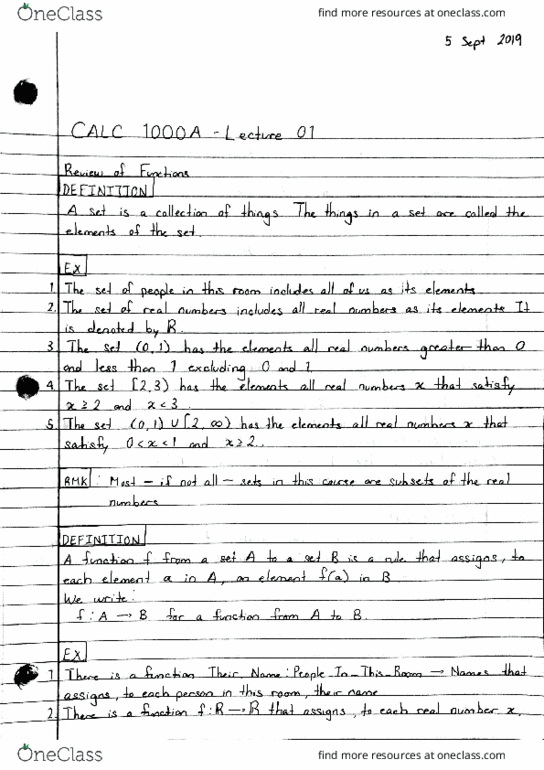 OneClass
find more resources at oneclass.com
5 Sept 2019
CALC 1000A - Lecture 01
Review of Functions
DEFINITION
A set is a collection of things. The things in a set are called the
elements of the set.
Ex
1. The set of people in this room includes all of us as its elements.
2. The set of real numbers includes all real numbers as its elements. It
is denoted by R.
3. The set (0,1) has the elements all real numbers greater than 0
and less than 1 excluding 0 and 1.
4. The set [2,3) has the elements all real numbers x that satisfy
x ≥ 2 and x < 3.
5. The set (0,1) ∪ [2,∞) has the elements all real numbers x that
satisfy 0 < x < 1 and x ≥ 2.
RMK : Most - if not all - sets in this course are subsets of the real
numbers
DEFINITION
A function f from a set A to a set B is a rule that assigns, to
each element a in A, an element f(a) in B.
We write:
f : A → B for a function from A to B.
Ex
1. There is a function Their_Name : People_In_This_Room → Names that
assigns, to each person in this room, their name
2. There is a function f : R → R that assigns, to each real number x,
OneClass
find more resources at oneclass.com